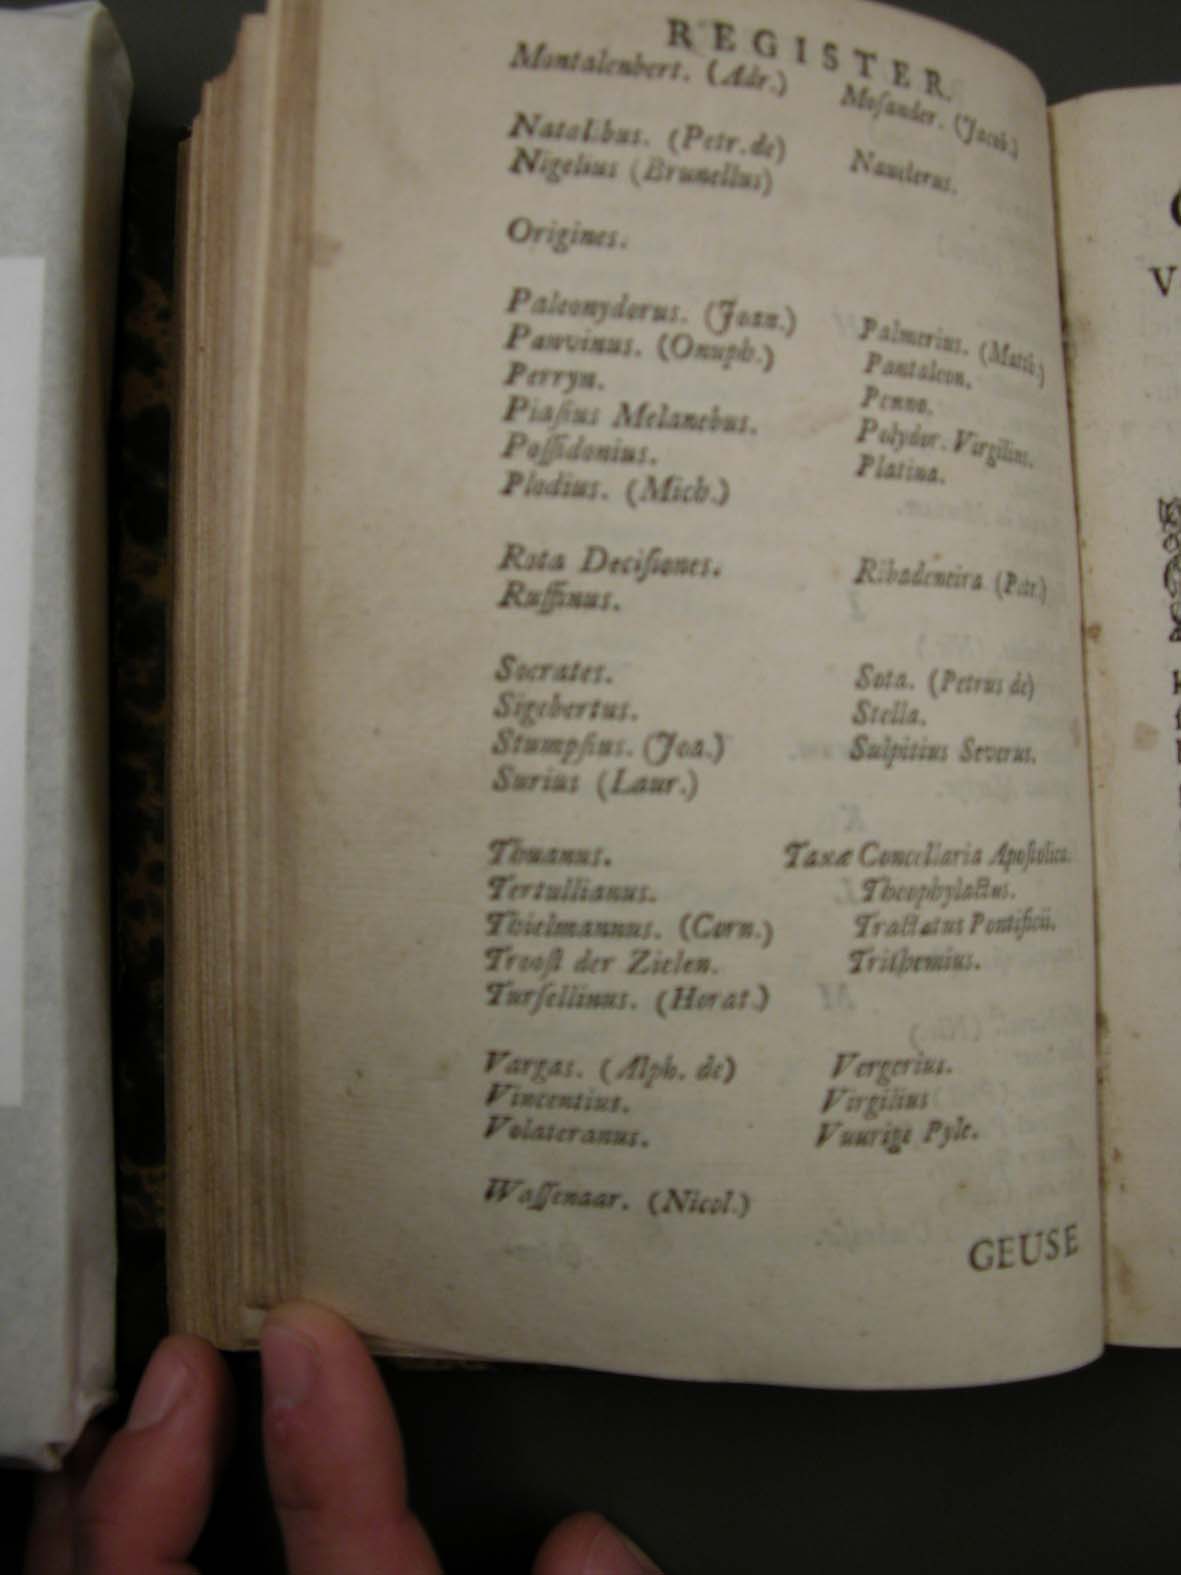 REGISTER.
Montalenbert. (Adr.) Mosander. (Jacob.)
Natalibus. (Petr. de) Nauclerus.
Nigelius (Brunellus)
Origines.
Paleonydorus. (Joan.) Palmerius. (Matth.)
Panvinus. (Onuph.) Pantaleon.
Perryn. Penno.
Piaſius Melanebus. Polydor. Virgilius.
Poſſidonius. Platina.
Plodius. (Mich.)
Rota Deciſiones. Ribadeneira (Petr.)
Ruffinus.
Socrates. Sota. (Petrus de)
Sigebertus. Stella.
Stumpſius. (Joa.) Sulpitius Severus.
Surius (Laur.)
Thuanus. Taxæ Concellaria Apoſtolica.
Tertullianus. Theophylactus.
Thielmannus. (Corn.) Tractatus Pontificii.
Trooſt der Zielen. Trithemius.
Turſellinus. (Horat.)
Vargas. (Alph. de) Vergerius.
Vincentius. Virgilius
Volateranus. Vuurige Pyle.
Waſſenaar. (Nicol.)
GEUSE